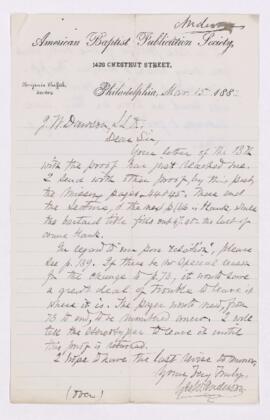 Anderson
American Baptist Publication Society,
1420 CHESTNUT STREET,
Benjamin Griffith,
Philadelphia, Mar. 15 188
J. W. Dawson, LL.D.
Dear Sir
Your letter of the 13th
with the proof has just reached me.
I send with other proof by this post,
the missing pages 44 & 45. These end
the lecture, & the next p. is blank, since
the bastard title
course blank.
In regard to , please
see p. 139. If there be no special reason
for the change to p. 73, it would save
a great deal of trouble to leave it
where it is. The pages would need, from
73 to end, to be numbered anew. I
told the stereotyper to leave it until
this proof is returned.
I hope to have the last revise to-morrow.
Yours Very Truly,
Anderson
(over)